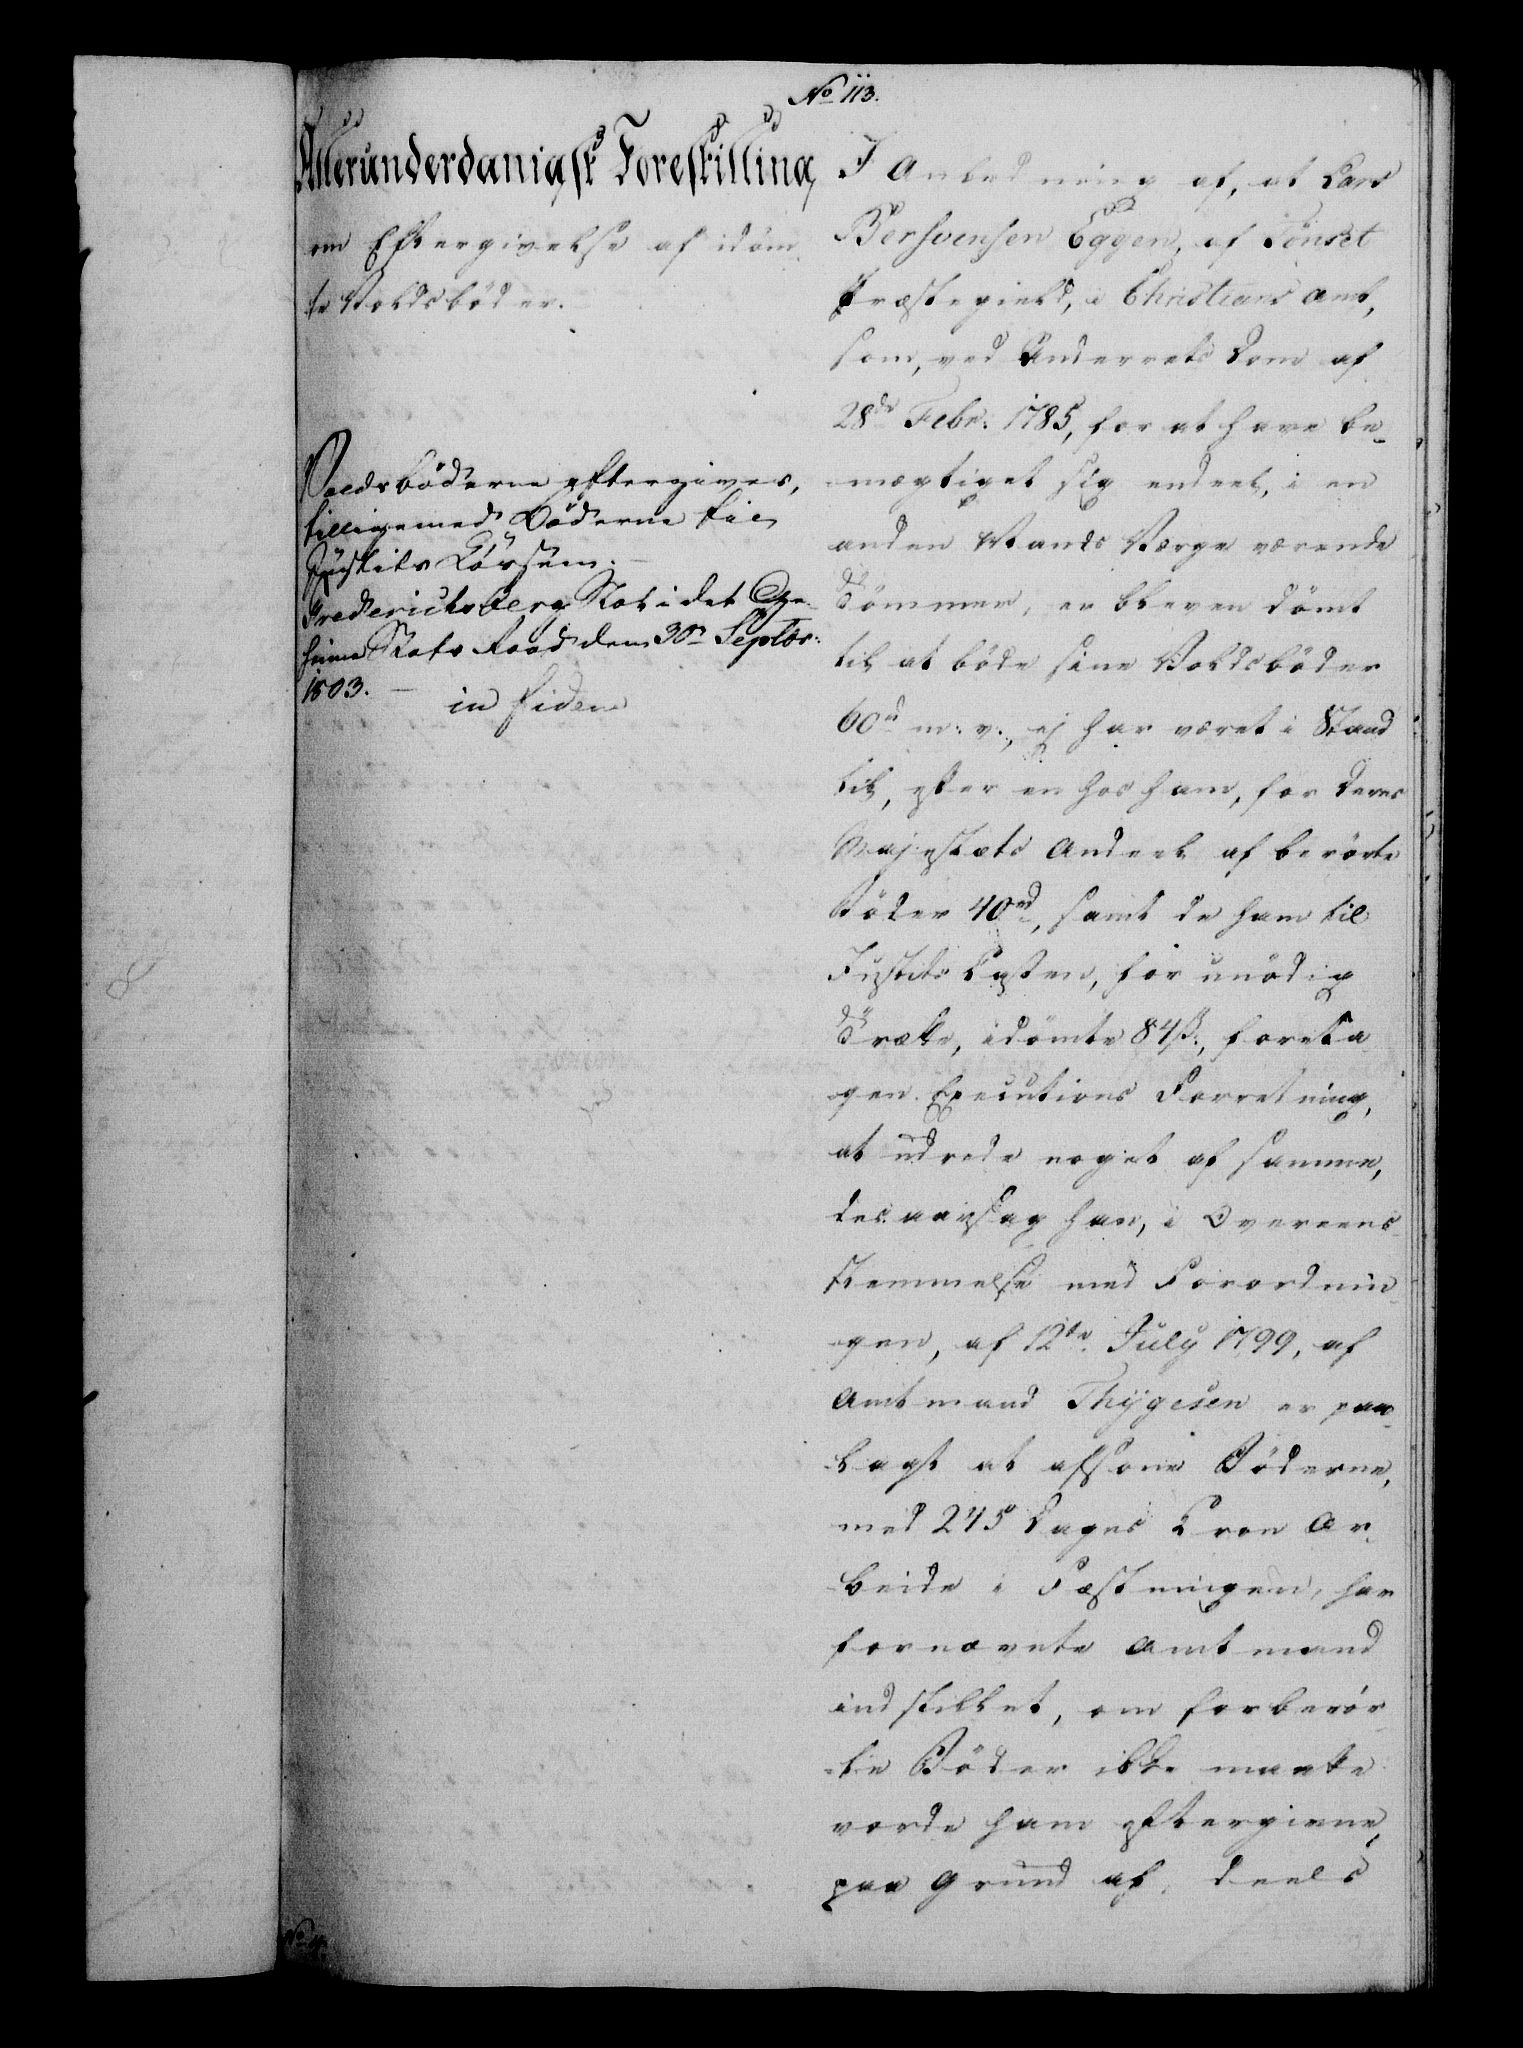 No 113.
Allerunderdanigst Forestilling
om Eftergivelse af idöm-
te Voldsböder.
Voldsböderne eftergives,
tilligemed Böderne til
Justits Cassen. -
Frederichsberg Slot i det Ge-
heime Stats Raad den 30te Septbr:
1803. -
in fidem
I Anledning af, at Lars
Bersvensen Eggen, af Tönset
Præstegield, i Christians Amt,
som, ved Underrets Dom af
28de Febr: 1785, for at have be-
mægtiget sig endeel, i en
anden Mands Værge værende
Tömmer, er bleven dömt
til at böde sine Voldsböder
60 rd m: v:, ej har været i Stand
til, efter en hos ham, for Deres
Majestæts Andeel af berörte
Böder 40 rd, samt de ham til
Justits Cassen, for unödig
Trætte, idömte 84 s:, foreta-
gen Executions Forretning,
at udrede noget af samme,
desaarsag han, i Overeens-
stemmelse med Forordnin-
gen, af 12te July 1799, af
Amtmand Thygesen er paa-
lagt at afsone Böderne,
med 245 Dages Cron Ar-
beide i Fæstningen, har
fornævnte Amtmand
indstillet, om forberör-
te Böder ikke maatte
vorde ham eftergivne,
paa Grund af, deels